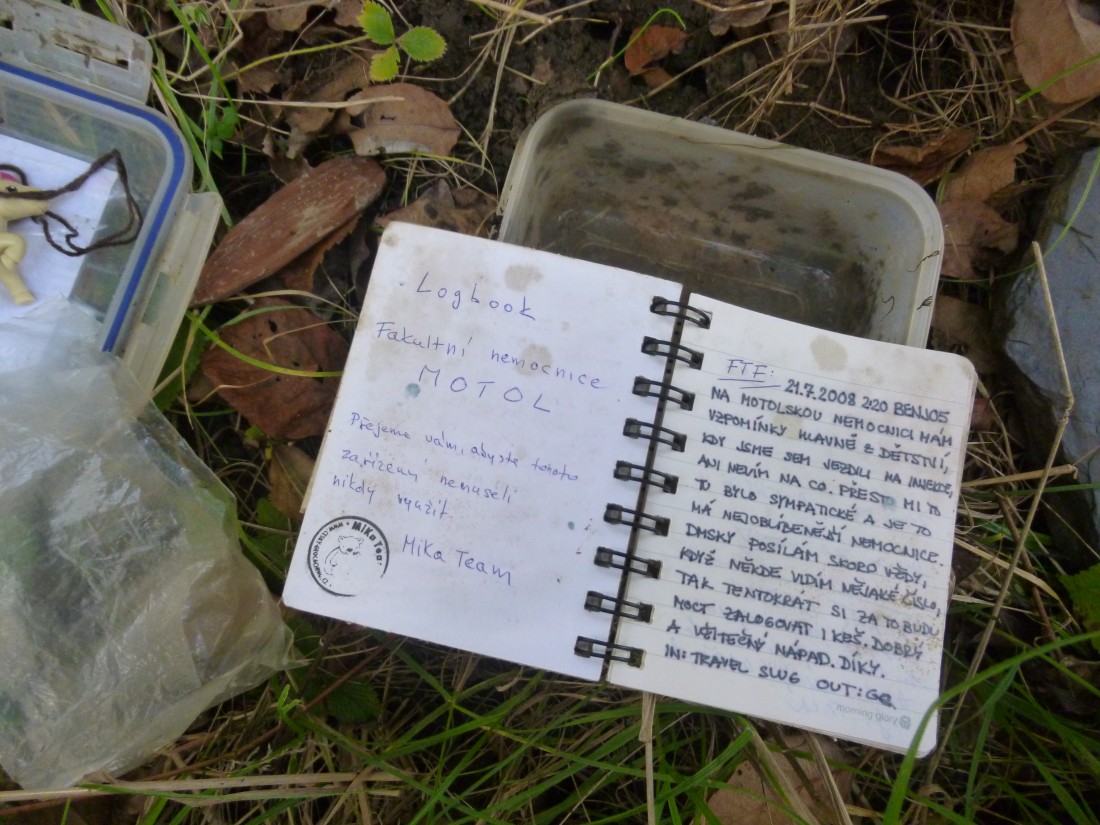 Logbook
Fakultní nemocnice
MOTOL
Přejeme vám, abyste tohoto
zařízení nemuseli
nikdy využít.
Mika Team
MiKa Tea
FTF: 21.7.2008 2:20 BENJO5
NA MOTOLSKOU NEMOCNICI MÁM
VZPOMÍNKY HLAVNĚ Z DĚTSTVÍ,
KDY JSME SEM JEZDILI NA INJEKCE,
ANI NEVÍM NA CO. PŘESTO MI TO
TO BYLO SYMPATICKÉ A JE TO
MÁ NEJOBLÍBENĚJŠÍ NEMOCNICE.
DMSKY POSÍLÁM SKORO VŽDY,
KDYŽ NĚKDE VIDÍM NĚJAKÉ ČÍSLO,
TAK TENTOKRÁT SI ZA TO BUDU
MOCT ZALOGOVAT I KEŠ. DOBRÝ
A UŽITEČNÝ NÁPAD. DÍKY.
IN: TRAVEL SLUG OUT: GC
morning glory